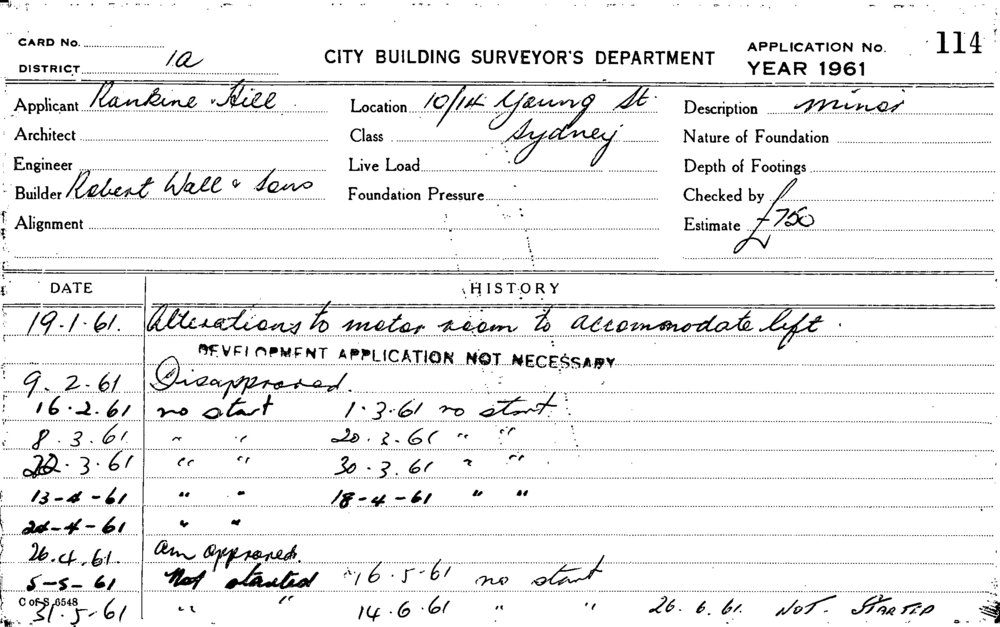 CARD No.
DISTRICT 1a
CITY BUILDING SURVEYOR'S DEPARTMENT
APPLICATION No. 114
YEAR 1961
Applicant Rankine & Hill
Location 10/14 Young St.
Description minor
Architect
Class Sydney
Nature of Foundation
Engineer
Live Load
Depth of Footings
Builder Robert Wall & Sons
Foundation Pressure
Checked by
Alignment
Estimate £750
DATE HISTORY
19.1.61. Alterations to motor room to accommodate lift.
DEVELOPMENT APPLICATION NOT NECESSARY
9.2.61 Disapproved.
16.2.61 no start 1.3.61 no start
8.3.61 " " 20.3.61 " "
22.3.61 " " 30.3.61 " "
13-4-61 " " 18-4-61 " "
24-4-61 " "
26.4.61. am approved.
5-5-61 Not started 16.5.61 no start
C of S 6548
31.5.61 " " 14.6.61 " " 26.6.61. NOT. STARTED